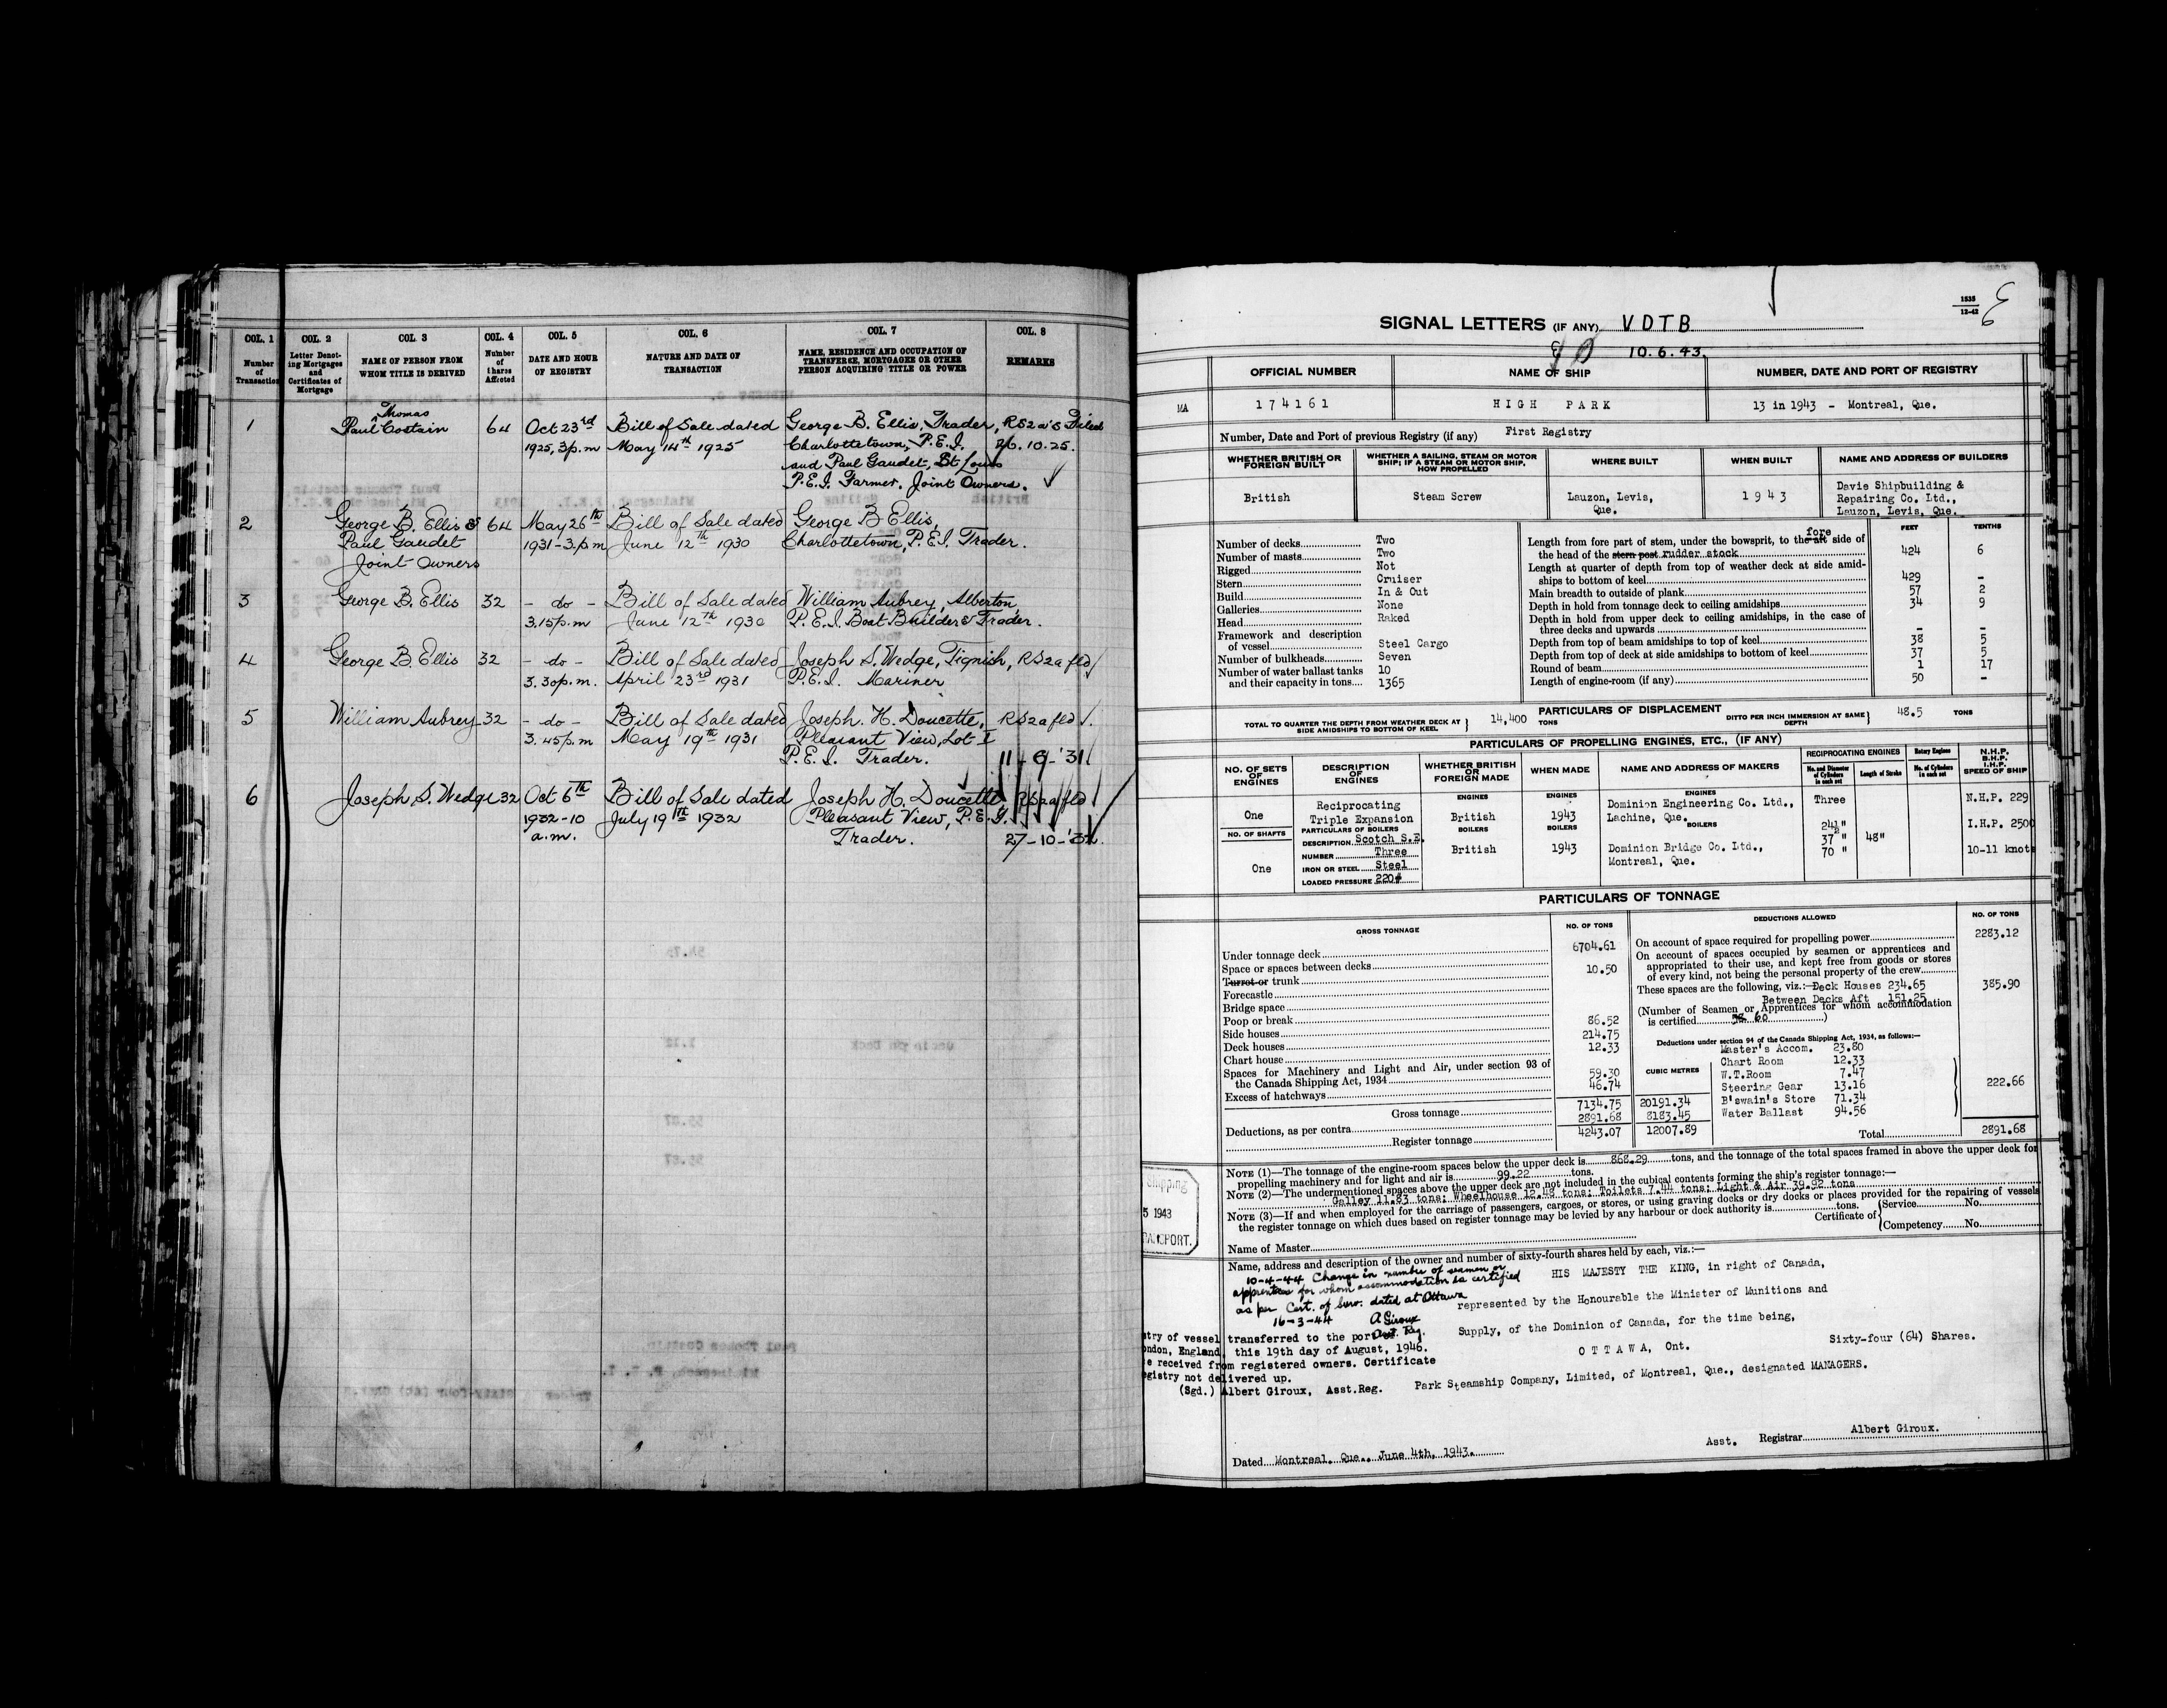 COL. 1 COL. 2 COL. 3 COL. 4 COL. 5 COL. 6 COL. 7 COL. 8
Number of Transaction
Letter Denoting Mortgages and Certificates of Mortgage
NAME OF PERSON FROM WHOM TITLE IS DERIVED
Number of Shares Affected
DATE AND HOUR OF REGISTRY
NATURE AND DATE OF TRANSACTION
NAME, RESIDENCE AND OCCUPATION OF TRANSFEREE, MORTGAGEE OR OTHER PERSON ACQUIRING TITLE OR POWER
REMARKS
Thomas
1 Paul Costain 64 Oct 23rd Bill of Sale dated George B. Ellis, Trader, RS2a's Filed
1925, 3p.m May 14th 1925 Charlottetown, P.E.I. 26.10.25.
and Paul Gaudet, St Louis
P.E.I. Farmer. Joint Owners.
2 George B. Ellis & 64 May 26th Bill of Sale dated George B Ellis,
Paul Gaudet 1931-3.p.m June 12th 1930 Charlottetown, P.E.I. Trader.
Joint Owners
3 George B. Ellis 32 - do - Bill of Sale dated William Aubrey, Alberton,
3.15p.m June 12th 1930 P.E.I. Boat Builder & Trader.
4 George B. Ellis 32 - do - Bill of Sale dated Joseph S. Wedge, Tignish, RS2a fld
3.30p.m. April 23rd 1931 P.E.I. Mariner
5 William Aubrey 32 - do - Bill of Sale dated Joseph. H. Doucette, RS2a fld
3.45p.m May 19th 1931 Pleasant View, Lot I
P.E.I. Trader. 11-9-'31
6 Joseph S. Wedge 32 Oct 6th Bill of Sale dated Joseph H. Doucette RS2a fld
1932-10 July 19th 1932 Pleasant View, P.E.I.
a.m. Trader. 27-10-'32.
1535
12-42
SIGNAL LETTERS (IF ANY) VDTB
10.6.43.
OFFICIAL NUMBER NAME OF SHIP NUMBER, DATE AND PORT OF REGISTRY
MA 174161 HIGH PARK 13 in 1943 - Montreal, Que.
Number, Date and Port of previous Registry (if any) First Registry
WHETHER BRITISH OR FOREIGN BUILT
WHETHER A SAILING, STEAM OR MOTOR SHIP; IF A STEAM OR MOTOR SHIP, HOW PROPELLED
WHERE BUILT WHEN BUILT NAME AND ADDRESS OF BUILDERS
British Steam Screw Lauzon, Levis, Que. 1943 Davie Shipbuilding &
Repairing Co. Ltd.,
Lauzon, Levis, Que.
Number of decks Two
Number of masts Two
Rigged Not
Stern Cruiser
Build In & Out
Galleries None
Head Raked
Framework and description of vessel Steel Cargo
Number of bulkheads Seven
Number of water ballast tanks 10
and their capacity in tons 1365
FEET TENTHS
fore
Length from fore part of stem, under the bowsprit, to the aft side of
the head of the stern post rudder stock 424 6
Length at quarter of depth from top of weather deck at side amidships to bottom of keel 429 -
Main breadth to outside of plank 57 2
Depth in hold from tonnage deck to ceiling amidships 34 9
Depth in hold from upper deck to ceiling amidships, in the case of
three decks and upwards - -
Depth from top of beam amidships to top of keel 38 5
Depth from top of deck at side amidships to bottom of keel 37 5
Round of beam 1 17
Length of engine-room (if any) 50 -
PARTICULARS OF DISPLACEMENT
TOTAL TO QUARTER THE DEPTH FROM WEATHER DECK AT SIDE AMIDSHIPS TO BOTTOM OF KEEL 14,400 TONS DITTO PER INCH IMMERSION AT SAME DEPTH 48.5 TONS
PARTICULARS OF PROPELLING ENGINES, ETC., (IF ANY)
NO. OF SETS OF ENGINES
DESCRIPTION OF ENGINES
WHETHER BRITISH OR FOREIGN MADE
WHEN MADE
NAME AND ADDRESS OF MAKERS
RECIPROCATING ENGINES
No. and Diameter of Cylinders in each set
Length of Stroke
Rotary Engines
No. of Cylinders in each set
N.H.P.
B.H.P.
I.H.P.
SPEED OF SHIP
ENGINES ENGINES ENGINES
One Reciprocating Triple Expansion British 1943 Dominion Engineering Co. Ltd., Lachine, Que. Three N.H.P. 229
NO. OF SHAFTS
PARTICULARS OF BOILERS BOILERS BOILERS BOILERS
24½" I.H.P. 2500
37 " 48"
70 " 10-11 knots
DESCRIPTION Scotch S.E.
NUMBER Three British 1943 Dominion Bridge Co. Ltd.,
One IRON OR STEEL Steel Montreal, Que.
LOADED PRESSURE 220#
PARTICULARS OF TONNAGE
GROSS TONNAGE NO. OF TONS
Under tonnage deck 6704.61
Space or spaces between decks 10.50
Turret or trunk
Forecastle
Bridge space
Poop or break 86.52
Side houses 214.75
Deck houses 12.33
Chart house
Spaces for Machinery and Light and Air, under section 93 of
the Canada Shipping Act, 1934 59.30
Excess of hatchways 46.74
CUBIC METRES
Gross tonnage 7134.75 20191.34
Deductions, as per contra 2891.68 8183.45
Register tonnage 4243.07 12007.89
DEDUCTIONS ALLOWED NO. OF TONS
On account of space required for propelling power 2283.12
On account of spaces occupied by seamen or apprentices and
appropriated to their use, and kept free from goods or stores
of every kind, not being the personal property of the crew
These spaces are the following, viz.:—Deck Houses 234.65 385.90
Between Decks Aft 151.25
(Number of Seamen or Apprentices for whom accommodation
is certified 60 )
Deductions under section 94 of the Canada Shipping Act, 1934, as follows:—
Master's Accom. 23.80
Chart Room 12.33
W.T.Room 7.47
Steering Gear 13.16 222.66
B'swain's Store 71.34
Water Ballast 94.56
Total 2891.68
NOTE (1)—The tonnage of the engine-room spaces below the upper deck is 868.29 tons, and the tonnage of the total spaces framed in above the upper deck for
propelling machinery and for light and air is 99.22 tons.
NOTE (2)—The undermentioned spaces above the upper deck are not included in the cubical contents forming the ship's register tonnage:—
Galley 11.83 tons; Wheelhouse 12.48 tons; Toilets 7.44 tons; Light & Air 39.92 tons
NOTE (3)—If and when employed for the carriage of passengers, cargoes, or stores, or using graving docks or dry docks or places provided for the repairing of vessels
the register tonnage on which dues based on register tonnage may be levied by any harbour or dock authority is tons.
Certificate of Service No.
Competency No.
Shipping
5 1943
Name of Master
Name, address and description of the owner and number of sixty-fourth shares held by each, viz.:—
10-4-44 Change in number of seamen or
apprentices for whom accommodation is certified
as per Cert. of Surv. dated at Ottawa
16-3-44 A Giroux
Asst. Reg.
HIS MAJESTY THE KING, in right of Canada,
represented by the Honourable the Minister of Munitions and
Supply, of the Dominion of Canada, for the time being,
OTTAWA, Ont. Sixty-four (64) Shares.
Park Steamship Company, Limited, of Montreal, Que., designated MANAGERS.
stry of vessel transferred to the port
ondon, England, this 19th day of August, 1946.
e received from registered owners. Certificate
egistry not delivered up.
(Sgd.) Albert Giroux, Asst.Reg.
Asst. Registrar Albert Giroux.
Dated Montreal, Que., June 4th, 1943.